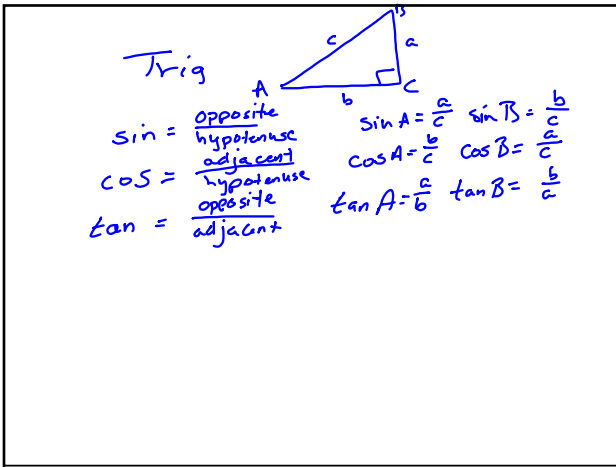 Trig
B
c
a
A
C
b
sin = opposite/hypotenuse
cos = adjacent/hypotenuse
tan = opposite/adjacent
sin A = a/c sin B = b/c
cos A = b/c cos B = a/c
tan A = a/b tan B = b/a